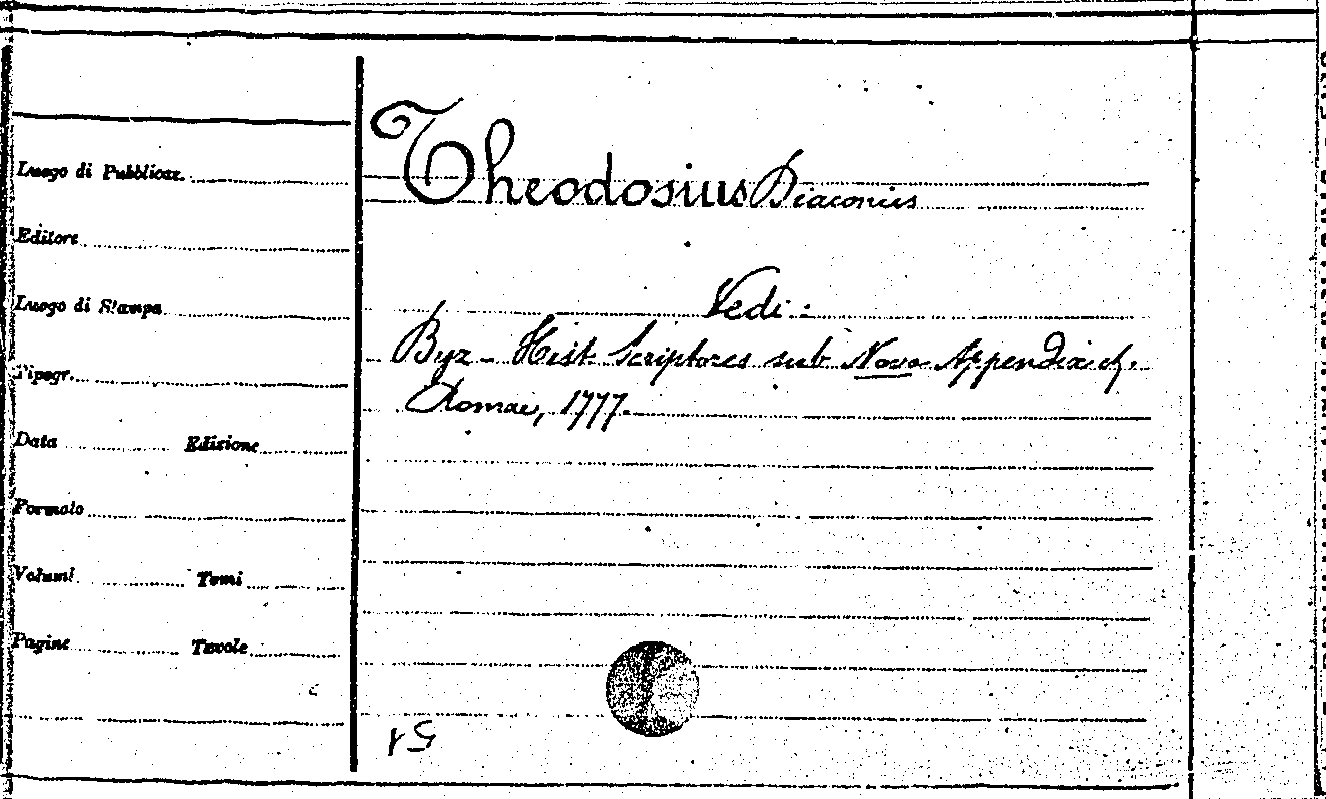 Luogo di Pubblicaz.
Editore
Luogo di Stampa
Tipogr.
Data Edizione
Formato
Volumi Tomi
Pagine Tavole
Theodosius Diaconus
Vedi:
Byz - Hist. Scriptores sub Nova Appendix
Romae, 1777.